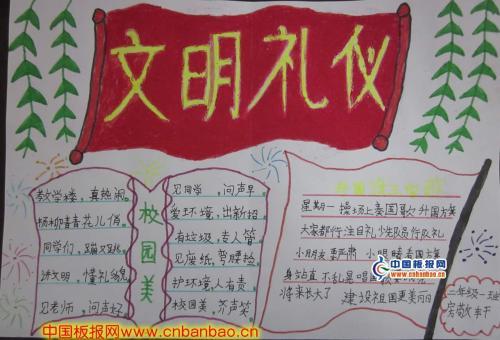 文明礼仪
校园美
教学楼，真热闹，
杨柳青青花儿俏，
同学们，蹦又跳，
讲文明，懂礼貌，
见老师，问声好，
见同学，问声早，
爱环境，出新招，
有垃圾，专人管，
见废纸，弯腰捡，
护环境，人有责，
校园美，齐声笑，
星期一 操场上奏国歌 升国旗
大家都行注目礼 少先队员行队礼
小朋友 要严肃 小眼睛看国旗
身站直 不乱晃 唱国歌要
将来长大了 建设祖国更美丽
二年级一班
中国板报网
www.cnbanbao.cn
中国板报网www.cnbanbao.cn